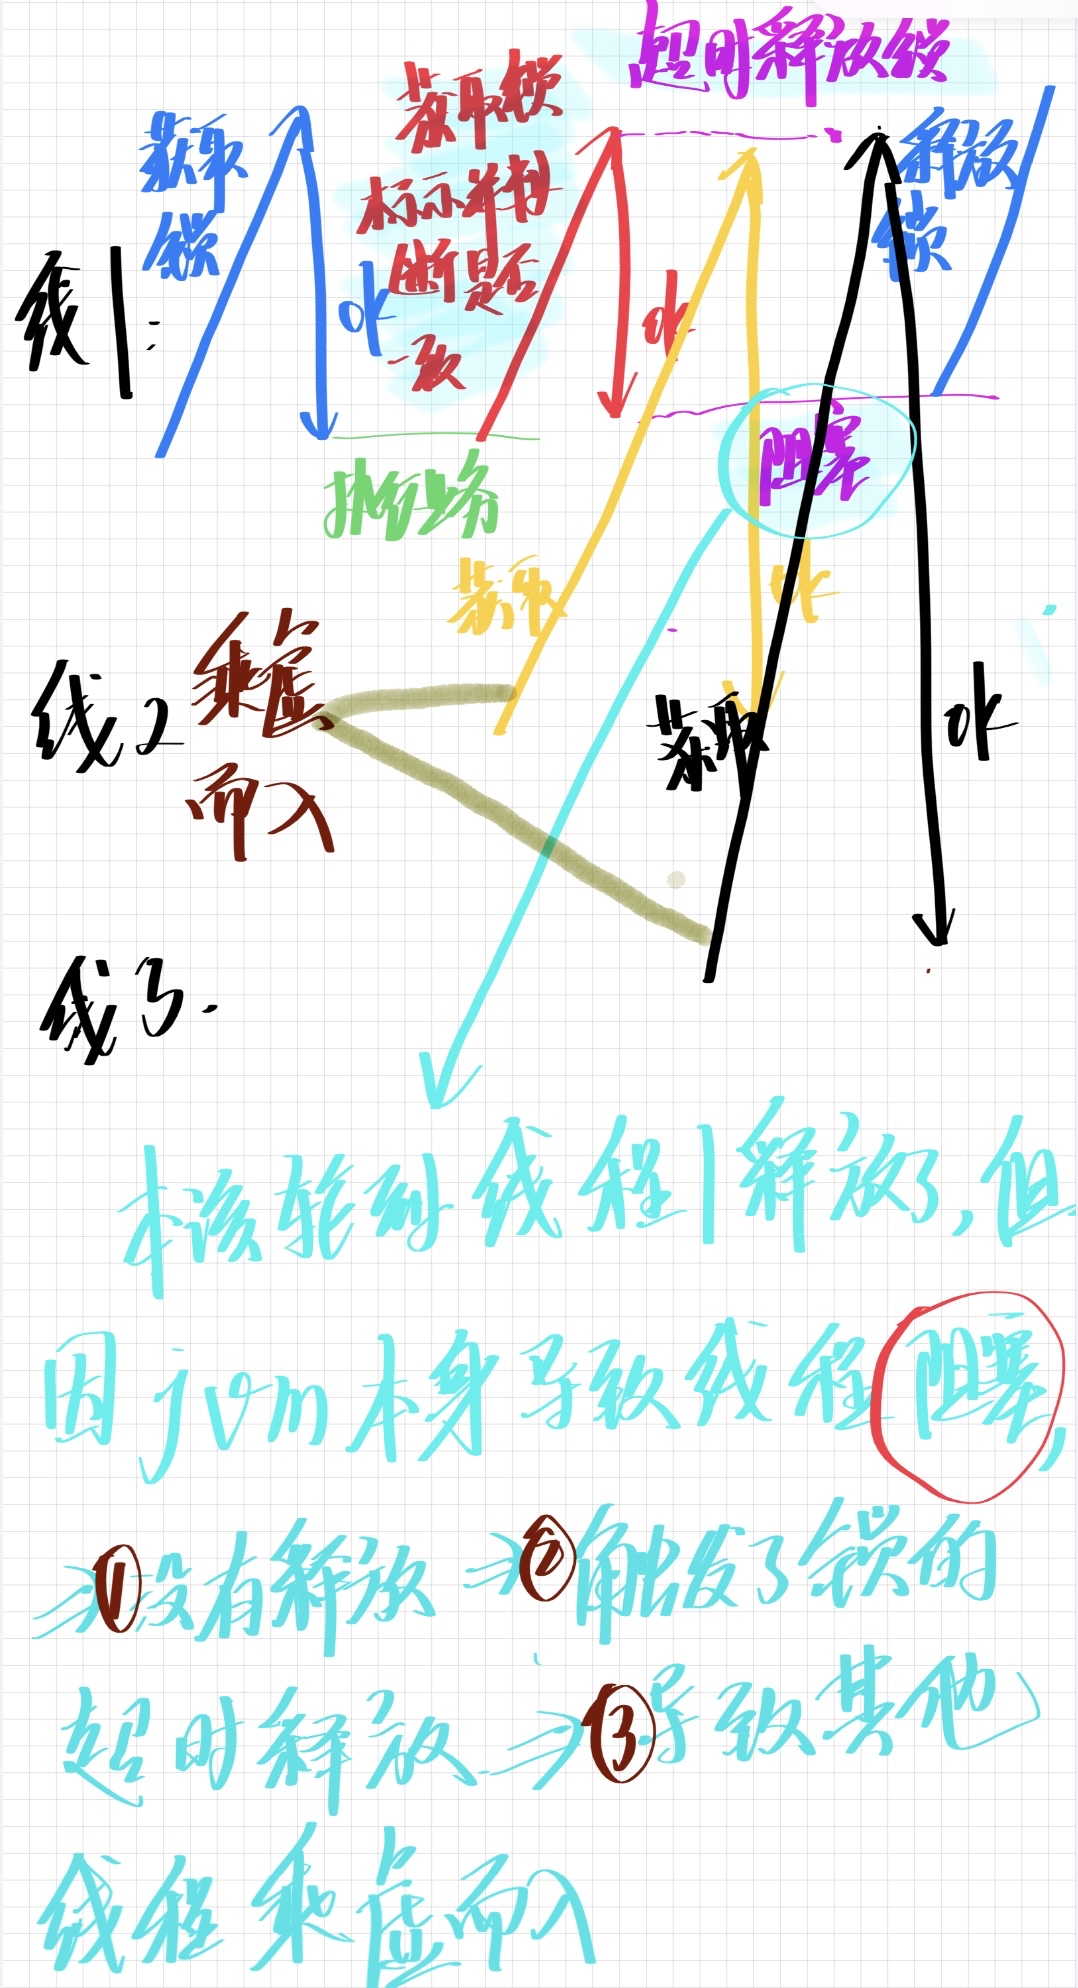 超时释放锁
获取
锁
获取锁
标示并判
断是否
一致
释放
锁
线1:
ok
ok
阻塞
执行业务
获取
ok
线2
乘虚
而入
获取
ok
线3.
本该轮到线程1释放了,但
因jvm本身导致线程阻塞,
=>①没有释放=>②触发了锁的
超时释放=>③导致其他
线程乘虚而入